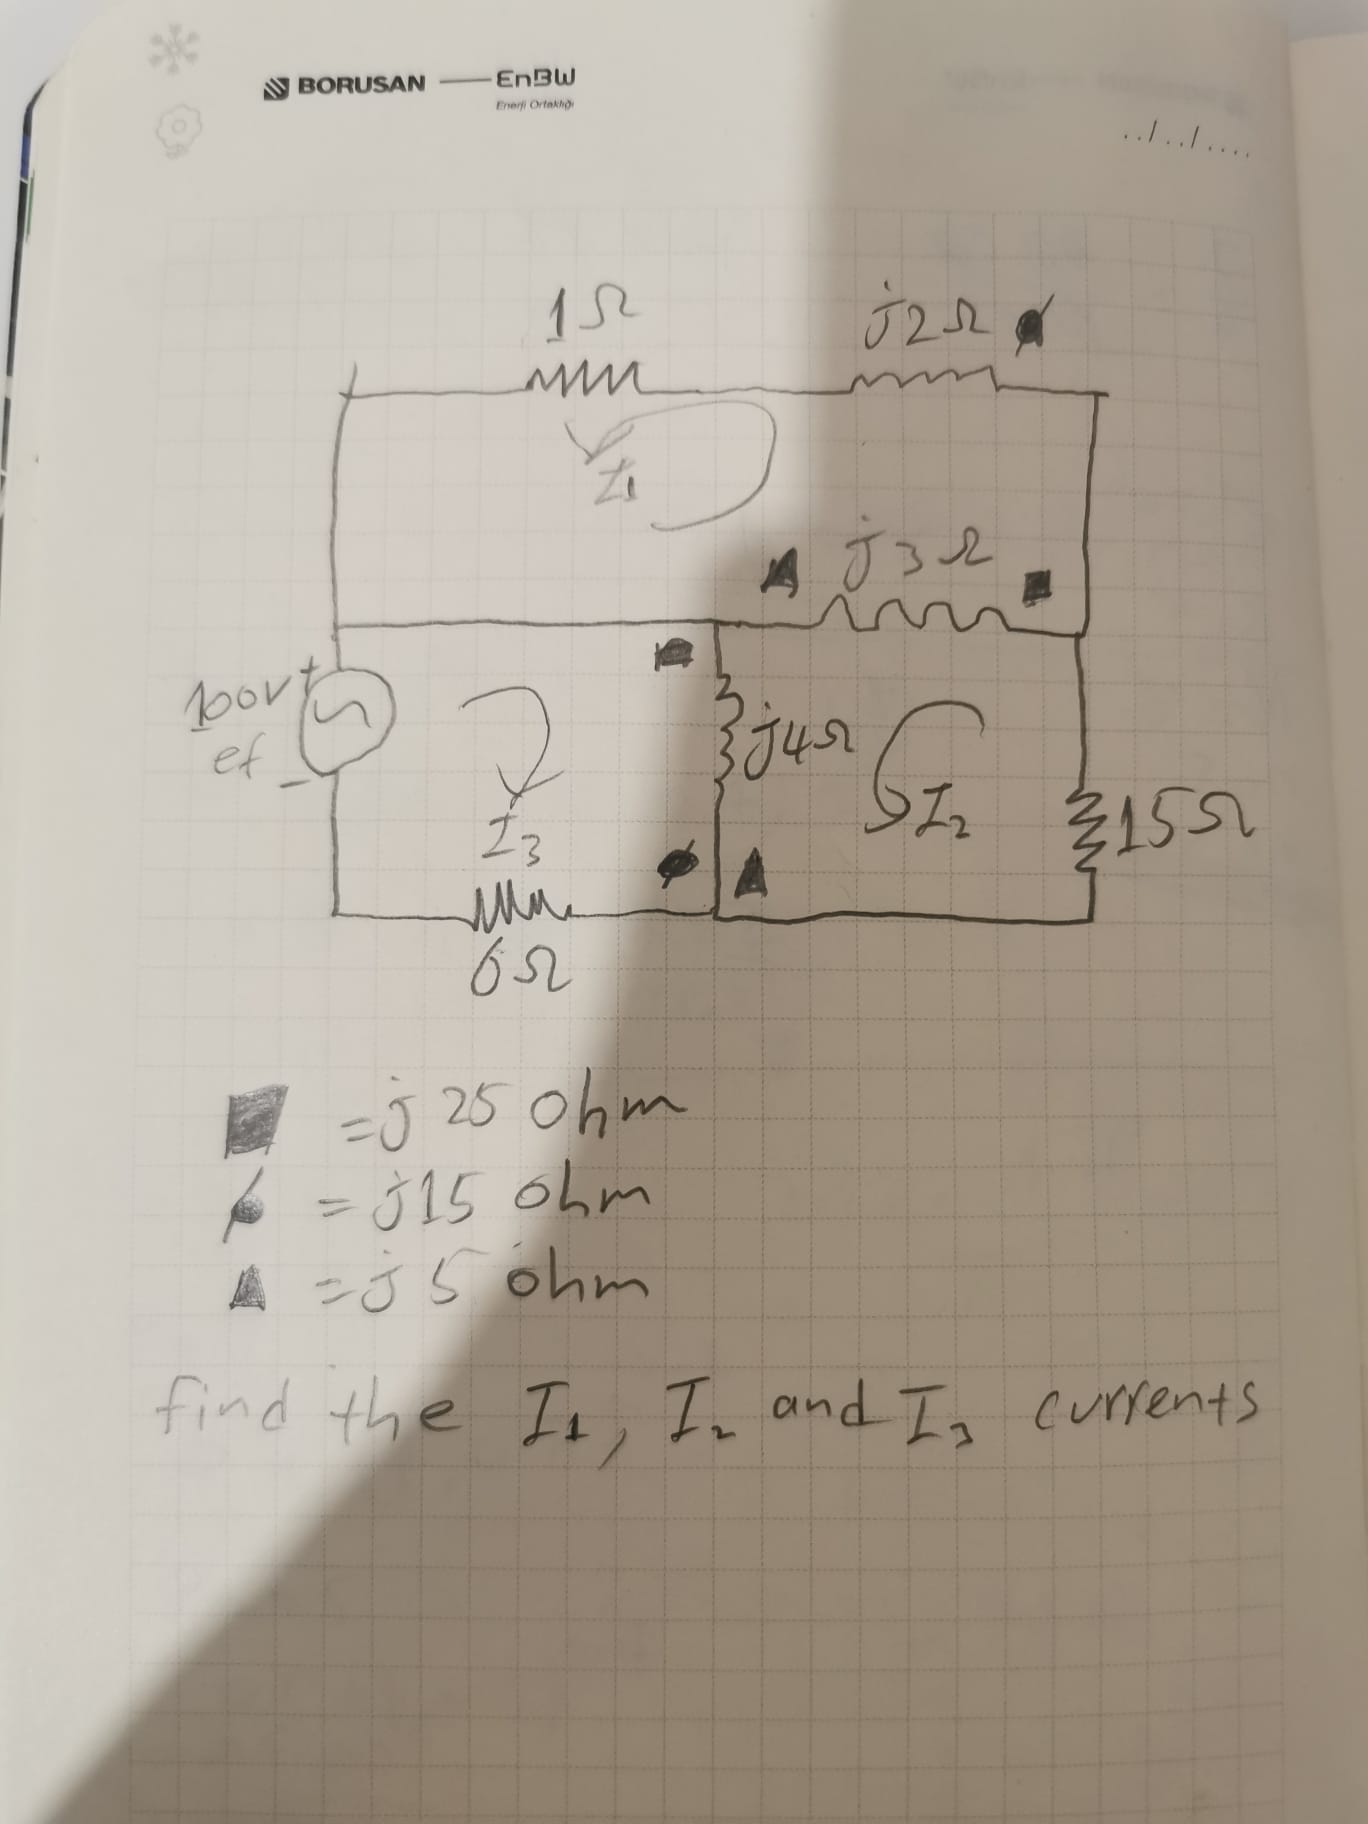 BORUSAN EnBW
Enerji Ortaklığı
../../....
1Ω
j2Ω
I1
j3Ω
100V +
ef -
j4Ω
I2
15Ω
I3
6Ω
= j 25 ohm
= j15 ohm
= j 5 ohm
find the I1, I2 and I3 currents